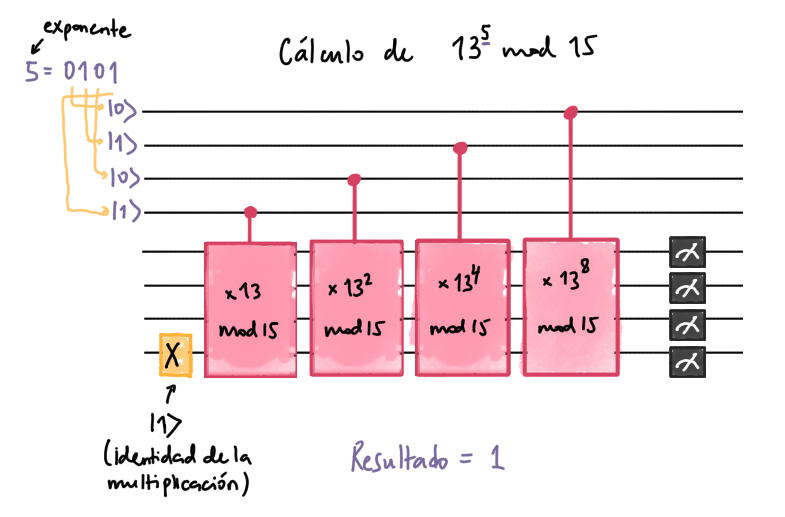 exponente
Cálculo de 13⁵ mod 15
5 = 0101
|0⟩
|1⟩
|0⟩
|1⟩
x 13 mod 15
x 13² mod 15
x 13⁴ mod 15
x 13⁸ mod 15
X
|1⟩
(identidad de la
multiplicación)
Resultado = 1